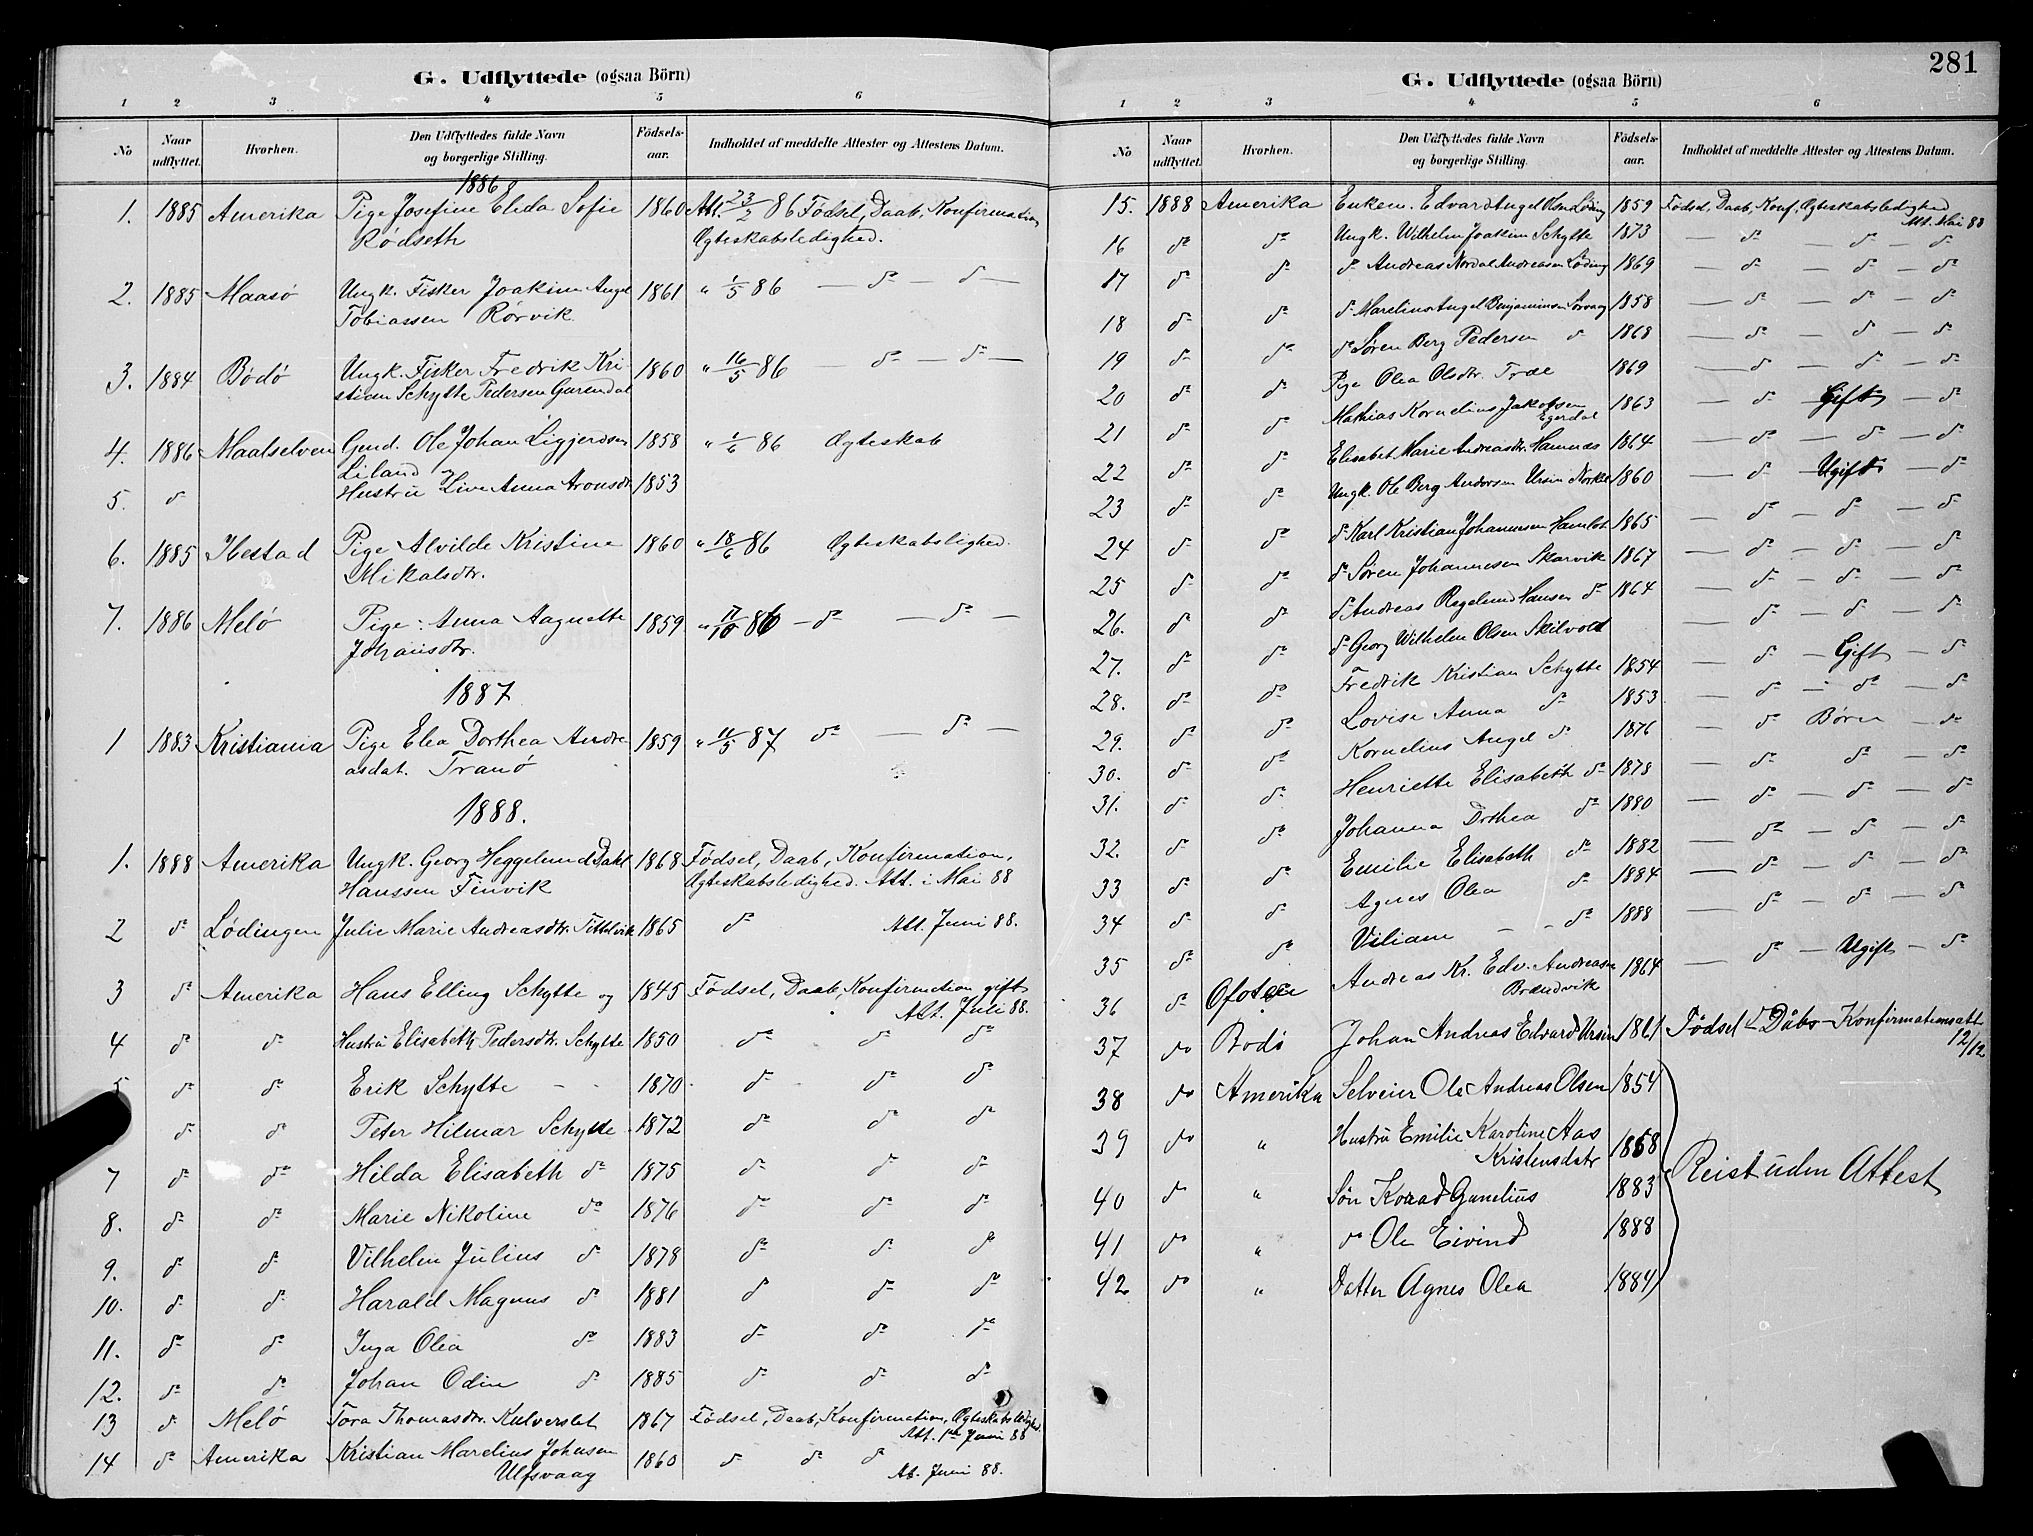 G. Udflyttede (ogsaa Börn)
1 2 3 4 5 6
No
Naar udflyttet.
Hvorhen.
Den Udflyttedes fulde Navn og borgerlige Stilling.
Födsels-aar.
Indholdet af meddelte Attester og Attestens Datum.
1886
1. 1885 Amerika Pige Josefine Elida Sofie 1860 Att. 23/2 86 Fødsel, Daab, Konfirmation,
Rødseth Ægteskabsledighed.
2. 1885 Maasø Ungk. Fisker Joakim Angel 1861 " 1/5 86 — do — do —
Tobiassen Rørvik
3. 1884 Bodø Ungk. Fisker Fredrik Kri- 1860 " 16/5 86 — do — do —
stian Schytte Pedersen Garendal
4. 1886 Maalselven Gmd. Ole Johan Liggjerdsen 1858 " 1/6 86 Ægteskab
Liland
5. do Hustru Live Anna Aronsdtr 1853
6. 1885 Ibestad Pige Alvilde Kristine 1860 " 18/6 86 Ægteskabslighed.
Mikalsdtr.
7. 1886 Melø Pige Anna Aagnette 1859 " 17/10 86 — do — do —
Johansdtr.
1887
1 1883 Kristiania Pige Elea Dorthea Andre- 1859 " 11/5 87 do — do —
asdat. Tranø
1888.
1. 1888 Amerika Ungk. Georg Heggelund Dahl 1868 Fødsel, Daab, Konfirmation,
Hanssen Finvik Ægteskabsledighed. Att. i Mai 88
2 do Lødingen Julie Marie Andreasdtr. Tittelvik 1865 do Att. Juni 88.
3 do Amerika Hans Elling Schytte og 1845 Fødsel, Daab, Konfirmation gift
Att. Juli 88.
4 do do Hustru Elisabeth Pedersdtr. Schytte 1850 do do do
5 do do Erik Schytte - - 1870 do do do
do do Peter Hilmar Schytte 1872 do do do
7 do do Hilda Elisabeth do 1875 do do do
8. do do Marie Nikoline do 1876 do do do
9. do do Vilhelm Julius do 1878 do do do
10. do do Harald Magnus do 1881 do do do
11. do do Inga Olea do 1883 do do do
12. do do Johan Odin do 1885 do do do
13 do Melø Tora Thomasdtr. Kulverslet 1867 Fødsel, Daab, Konfirmation, Ægteskabsledighed.
Att. 1ste Juni 88
14 do Amerika Kristian Marelius Johnsen 1860 do do do
Ulfsvaag At. Juni 88.
281
G. Udflyttede (ogsaa Börn)
1 2 3 4 5 6
No
Naar udflyttet.
Hvorhen.
Den Udflyttedes fulde Navn og borgerlige Stilling.
Födsels-aar.
Indholdet af meddelte Attester og Attestens Datum.
15. 1888 Amerika Enken. Edvard Angel Olsen Løding 1859 Fødsel, Daab, Konf, Ægteskabsledighed
Att. Mai 88
16 do do Ungk. Wilhelm Joakim Schytte 1873 — do — do — do
17 do do do Andreas Nordal Andreasen Løding 1869 — do — do — do
18 do do do Marelius Angel Benjaminsen Sørvaag 1858 — do — do — do
19 do do do Søren Berg Pedersen do 1868 — do — do — do
20 do do Pige Olea Olsdtr. Træe 1869 — do — do — do
21 do do Mathias Kornelius Jakobsen 1863 — do Gift — do
Egerdal
22 do do Elisabet Marie Andreasdtr. Hamnæs 1864 — do — do — do
23 do do Ungk. Ole Berg Andorsen Ursin 1860 — do — Ugift — do
24 do do do Karl Kristian Johannesen 1865 — do — do — do
25 do do do Søren Johannesen Skarvik 1867 — do — do — do
26. do do do Andreas Hansen do 1864 — do — do — do
27. do do do Georg Wilhelm Olsen Skilvold — do — do — do
28. do do Fredrik Kristian Schytte 1854 — do — Gift — do
29. do do Lovise Anna do 1853 — do — do — do
30. do do Kornelius Angel do 1876 — do Børn — do
31. do do Henriette Elisabeth do 1878 — do — do — do
32. do do Johanna Dothea do 1880 — do — do — do
33 do do Emilie Elisabeth do 1882 — do — do — do
34 do do Agnes Olea do 1884 — do — do — do
35 do do Viliam - - do 1888 — do — do — do
36 do Ofoten Andreas Kr. Edv. Andreasen 1864 do — Ugift — do
Brændvik
37 do Bodø Johan Andreas Edvard Ursin 1861 Fødsel- Dåbs- Konfirmationsatt
12/12
38 do Amerika Selveier Ole Andreas Olsen 1854
39 do " Hustru Emilie Karoline Aas 1858
Kristensdatr
Reist uden Attest
40 do " Søn Konrad Gunelius 1883
41 do " do Ole Eivind 1888
42 do " Datter Agnes Olea 1884